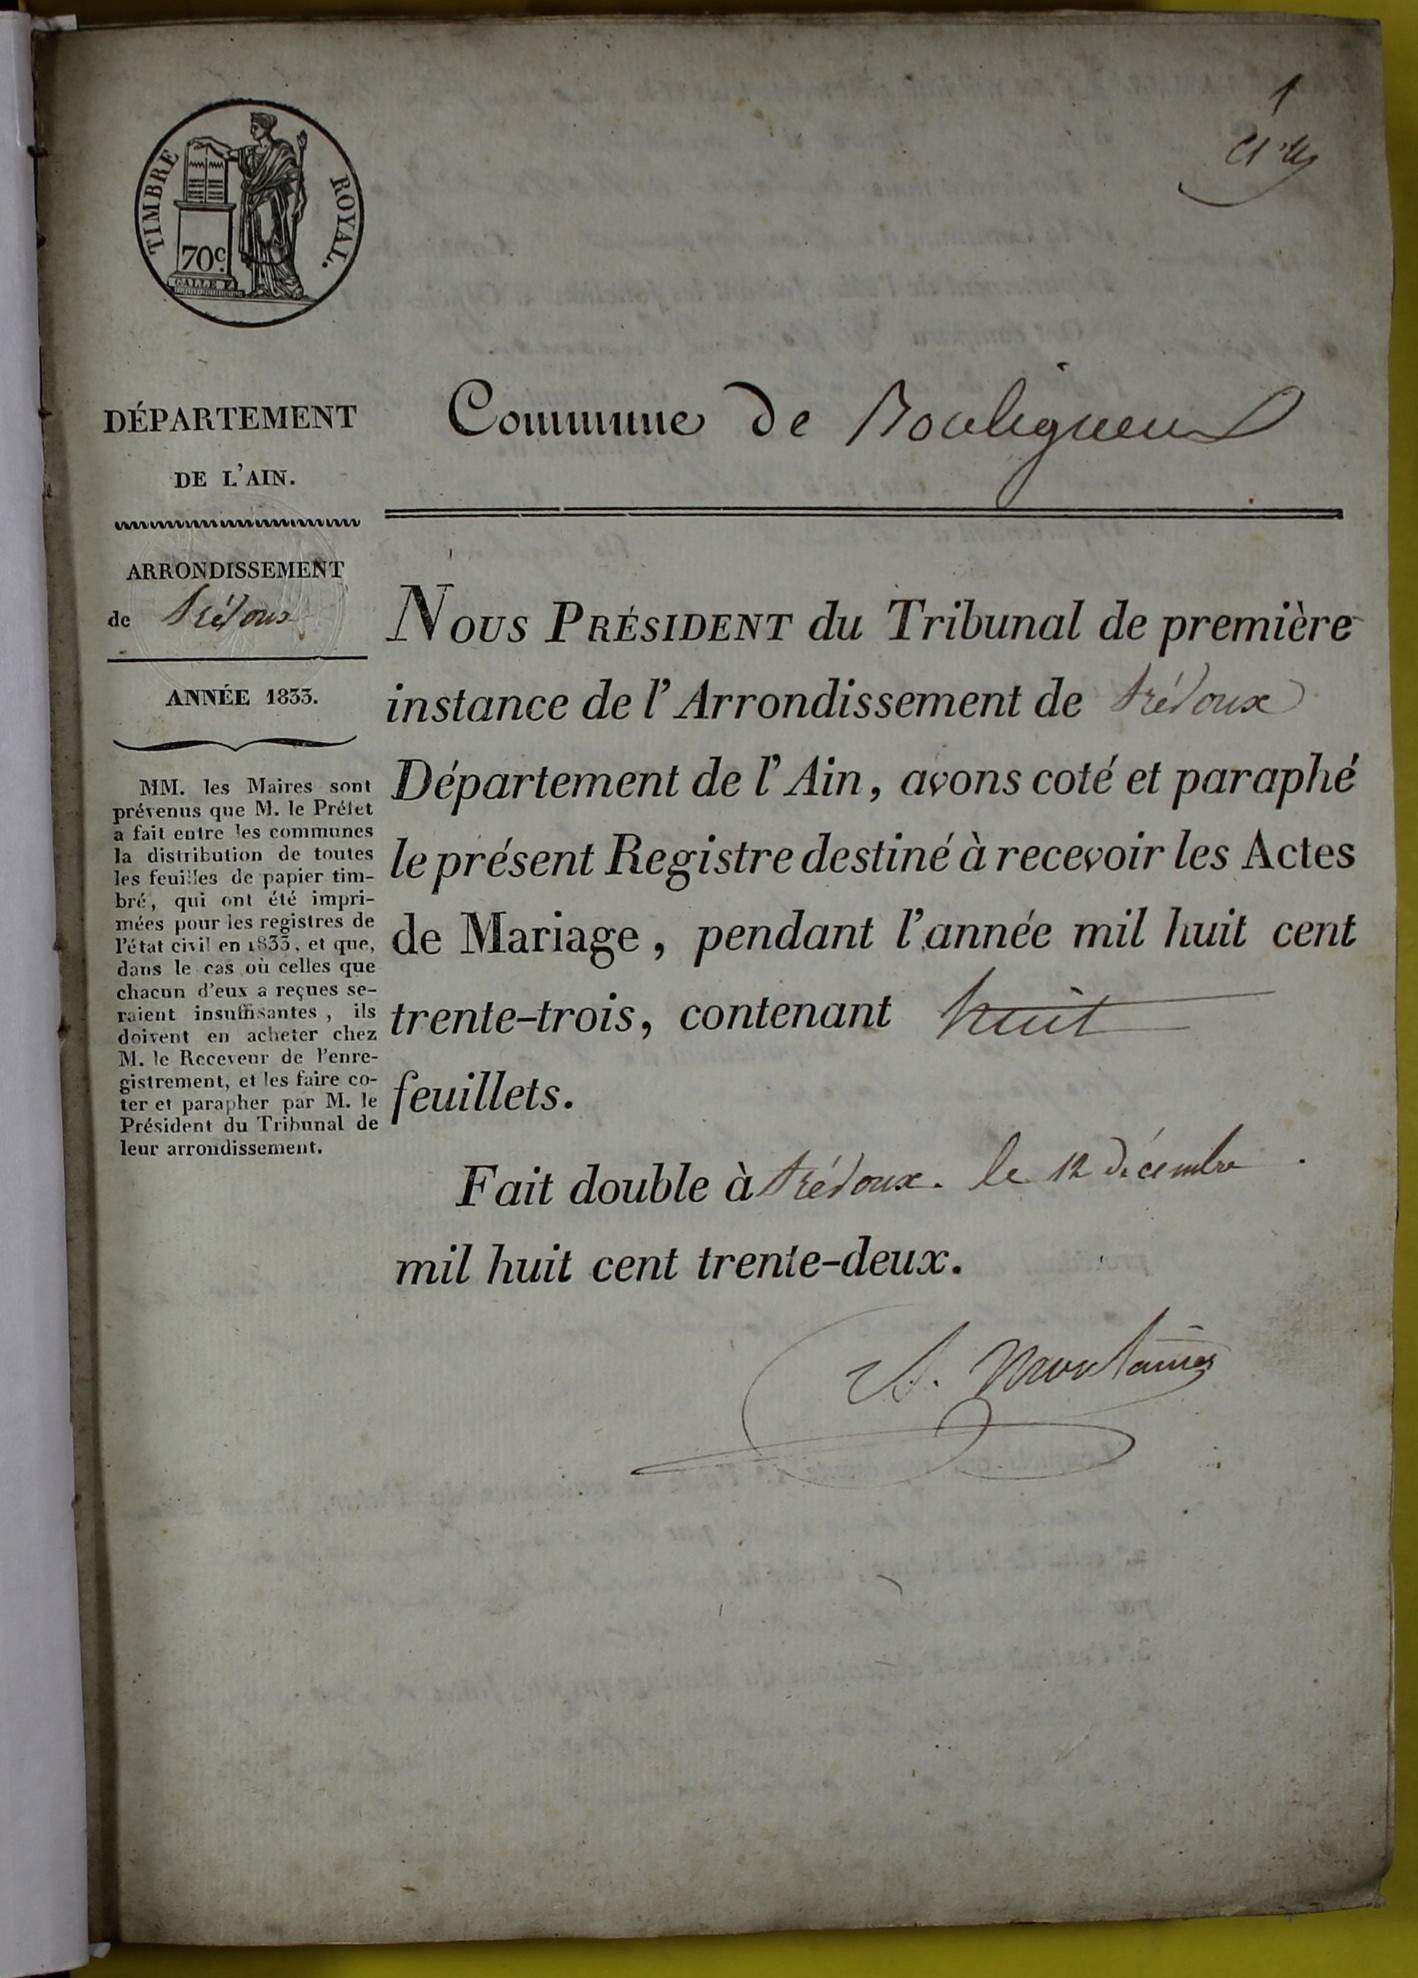 1
TIMBRE ROYAL.
70c.
GALLE F.
DÉPARTEMENT
DE L'AIN.
ARRONDISSEMENT
de Trévoux
ANNÉE 1833.
MM. les Maires sont
prévenus que M. le Préfet
a fait entre les communes
la distribution de toutes
les feuilles de papier tim-
bré, qui ont été impri-
mées pour les registres de
l'état civil en 1833, et que,
dans le cas où celles que
chacun d'eux a reçues se-
raient insuffisantes, ils
doivent en acheter chez
M. le Receveur de l'enre-
gistrement, et les faire co-
ter et parapher par M. le
Président du Tribunal de
leur arrondissement.
Commune de Bouligneux
NOUS PRÉSIDENT du Tribunal de première
instance de l'Arrondissement de Trévoux
Département de l'Ain, avons coté et paraphé
le présent Registre destiné à recevoir les Actes
de Mariage, pendant l'année mil huit cent
trente-trois, contenant huit
feuillets.
Fait double à Trévoux. le 12 décembre
mil huit cent trente-deux.